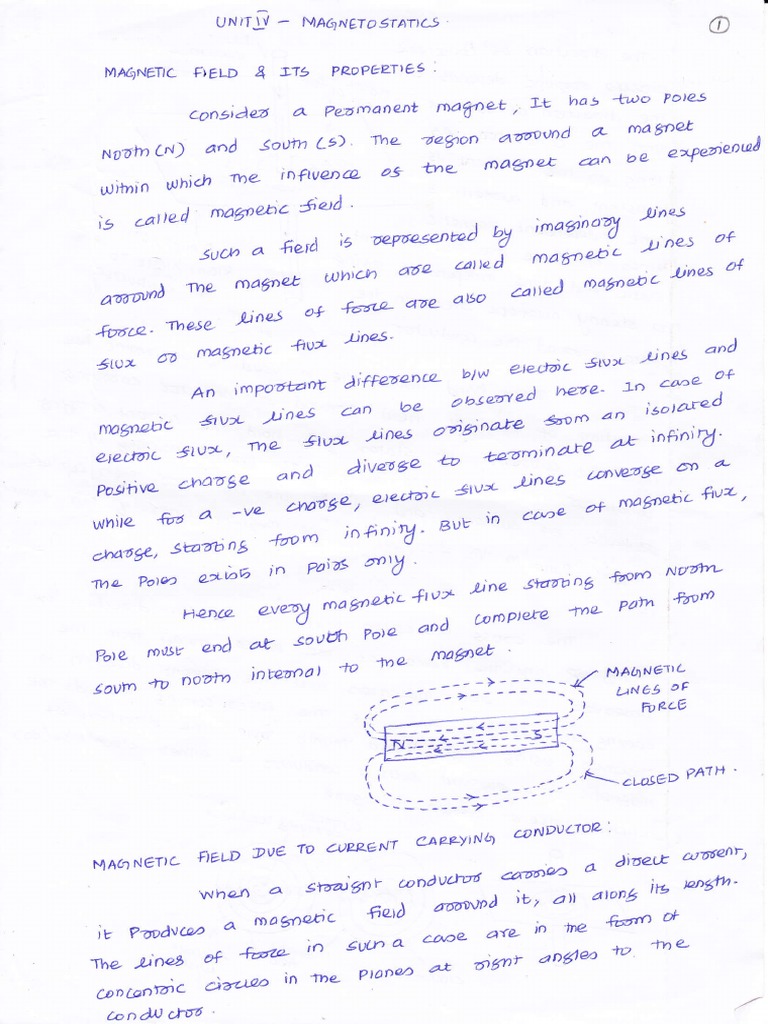 UNIT IV - MAGNETOSTATICS.
1
MAGNETIC FIELD & ITS PROPERTIES:
Consider a Permanent magnet, It has two Poles
North(N) and South(S). The region arround a magnet
within which the influence of the magnet can be experienced
is called magnetic field.
Such a field is represented by imaginary lines
arround The magnet which are called magnetic lines of
force. These lines of force are also called magnetic lines of
flux or magnetic flux lines.
An important difference b/w electric flux lines and
magnetic flux lines can be observed here. In case of
electric flux, The flux lines originate from an isolated
Positive charge and diverge to terminate at infinity.
while for a -ve charge, electric flux lines converge on a
charge, starting from infinity. But in case of magnetic flux,
The Poles exists in pairs only.
Hence every magnetic flux line starting from North
Pole must end at south Pole and complete the path from
south to north internal to the magnet.
MAGNETIC
LINES OF
FORCE
N
S
CLOSED PATH.
MAGNETIC FIELD DUE TO CURRENT CARRYING CONDUCTOR:
When a straight conductor carries a direct current,
it Produces a magnetic field arround it, all along its length.
The lines of force in such a case are in the form of
concentric circles in the Planes at right angles to the
conductor.